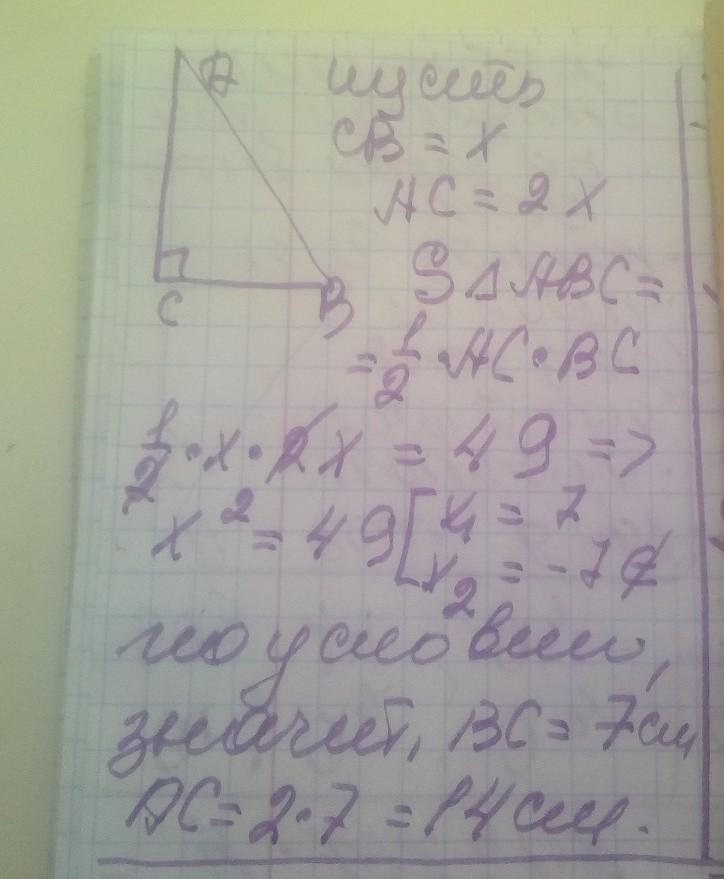 A
пусть
CB = x
AC = 2x
C
B
S△ABC =
= 1/2 · AC · BC
1/2 · x · 2x = 49 =>
x² = 49 [ x₁ = 7
x₂ = -7 ∉
по условию,
значит, BC = 7 см
AC = 2 · 7 = 14 см.